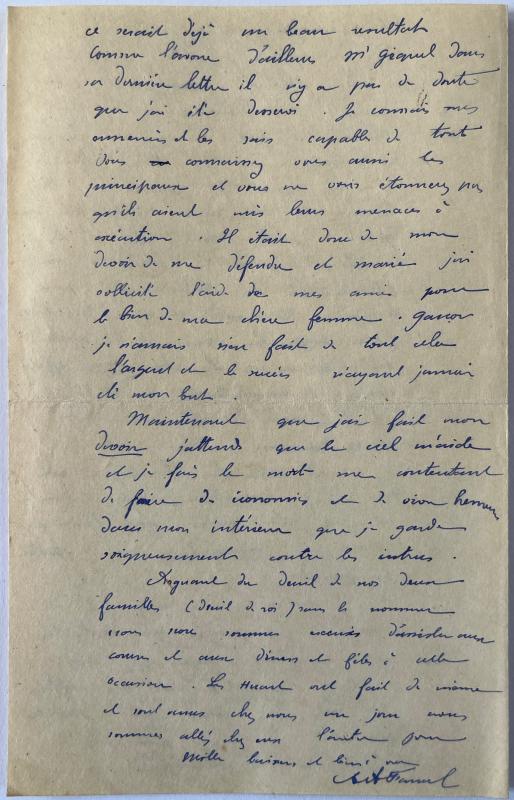 ce serait déjà un beau resultat
comme l'avoue d'ailleurs Mr Giquel dans
sa dernière lettre il n'y a pas de doute
que j'ai été desservi. Je connais mes
ennemis et les sais capables de tout
Vous connaissez vous aussi les
principaux et vous ne vous étonnerez pas
qu'ils aient mis leurs menaces à
exécution. Il était donc de mon
devoir de me défendre et marié j'ai
sollicité l'aide de mes amis pour
le bien de ma chère femme. Garçon
je n'aurais rien fait de tout cela
l'argent et le succès n'ayant jamais
été mon but.
Maintenant que j'ai fait mon
devoir j'attends que le ciel m'aide
et je fais le mort me contentant
de faire des économies et de vivre heureux
dans mon intérieur que je garde
soigneusement contre les intrus.
Arguant du deuil de nos deux
familles (deuil de roi) sans le nommer
nous nous sommes excusés d'assister aux
courses et aux diners et fêtes à cette
occasion. Les Huart ont fait de même
et sont venus chez nous un jour nous
sommes allés chez eux l'autre pour
Mille baisers et